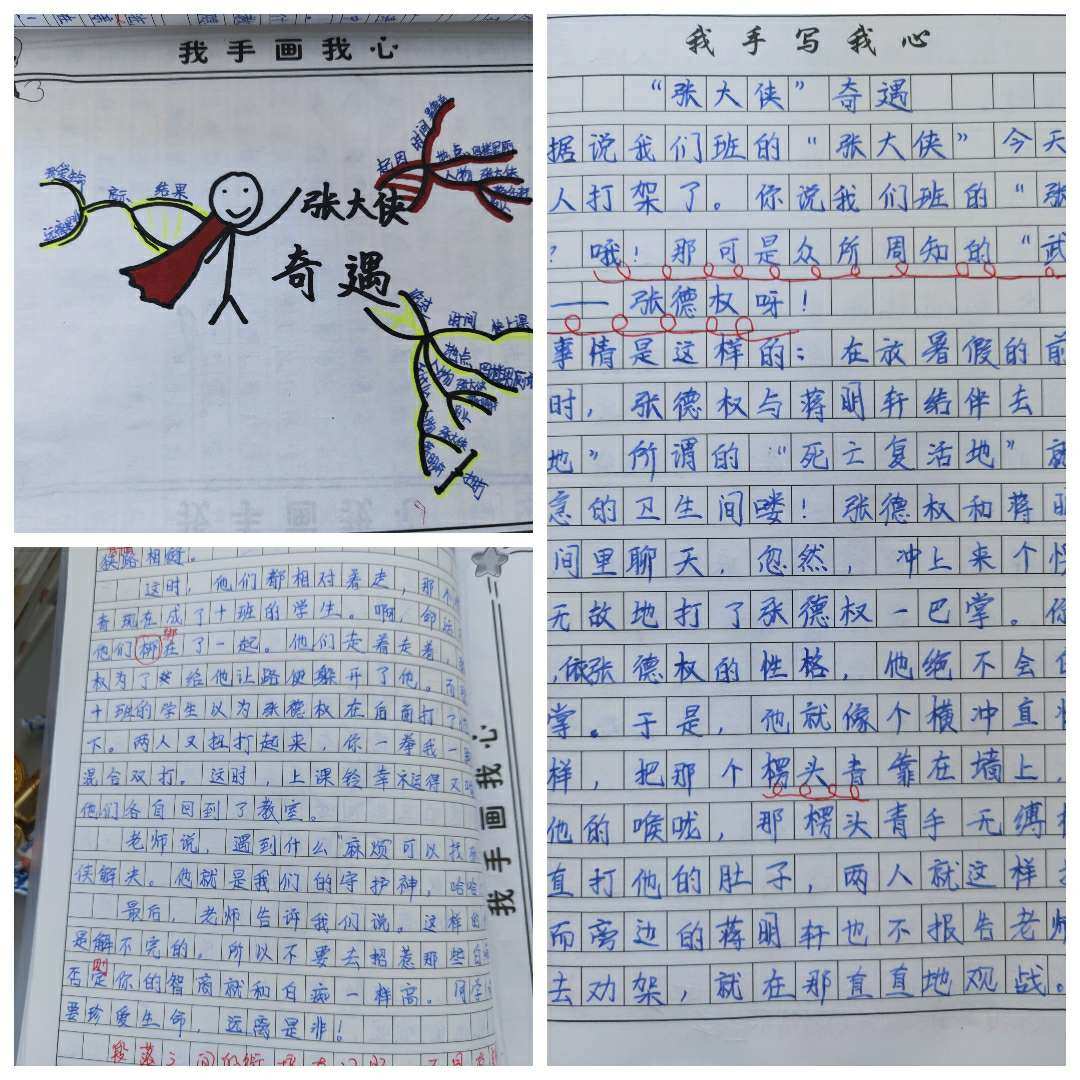 我手画我心
张大侠
奇遇
结果
起因
时间
地点
人物 张大侠
时间 快上课
地点
人物
张大侠
我手写我心
“张大侠”奇遇
据说我们班的“张大侠”今天
人打架了。你说我们班的“张
?哦!那可是众所周知的“武
——张德权呀!
事情是这样的:在放暑假的前
时,张德权与蒋明轩结伴去
地”所谓的“死亡复活地”就
急的卫生间喽!张德权和蒋明
间里聊天,忽然,冲上来个愣
无故地打了张德权一巴掌。你
,依张德权的性格,他绝不会白
掌。于是,他就像个横冲直撞
样,把那个楞头青靠在墙上,
他的喉咙,那楞头青手无缚
直打他的肚子,两人就这样
而旁边的蒋明轩也不报告老师
去劝架,就在那直直地观战。
狭路相逢。
这时,他们都相对着走,那个
者现在成了十班的学生。啊,命运
他们绑在了一起。他们走着走着,张
权为了给他让路便躲开了他。而
十班的学生以为张德权在后面打了
下。两人又扭打起来,你一拳我一
混合双打。这时,上课铃幸运得又
他们各自回到了教室。
老师说,遇到什么“麻烦可以找
侠解决。他就是我们的守护神,哈哈
最后,老师告诉我们说。这样的
是解不完的。所以不要去招惹那些白
否则定你的智商就和白痴一样高。同学
要珍爱生命,远离是非!
段落之间的衔接
我手画我心